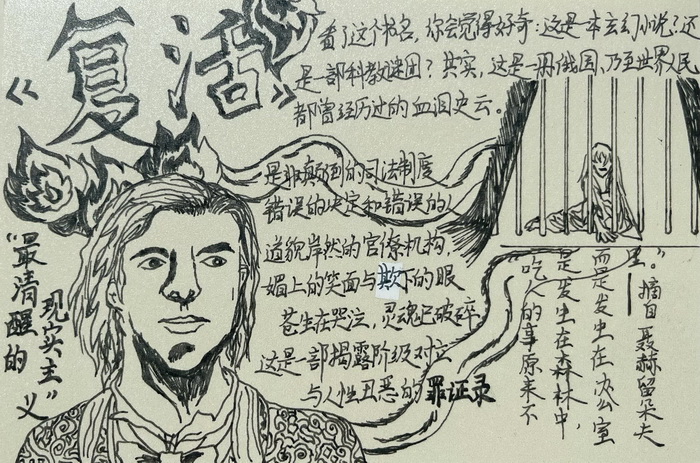 《复活》
看了这个书名，你会觉得好奇：这是一本玄幻小说？还
是一部科教谜团？其实，这是一册俄国、乃至世界人民
都曾经历过的血泪史云。
是非颠倒的司法制度
错误的决定和错误的人
道貌岸然的官僚机构，
媚上的笑面与欺下的眼
苍生在哭泣，灵魂已破碎
这是一部揭露阶级对立
与人性丑恶的罪证录
“最清醒的
现实主义”
吃人的事原来不
是发生在森林中，
而是发生在办公室
里。”
——摘自 聂赫留朵夫